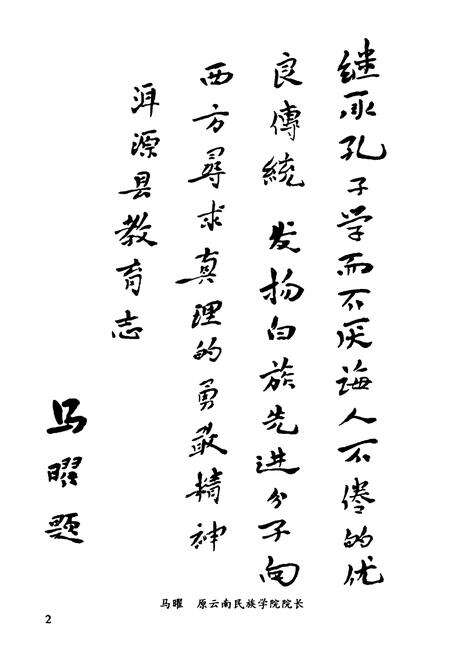 继承孔子学而不厌诲人不倦的优
良傳統 发扬白族先进分子向
西方尋求真理的勇敢精神
洱源县教育志
马曜题
马曜 原云南民族学院院长
2